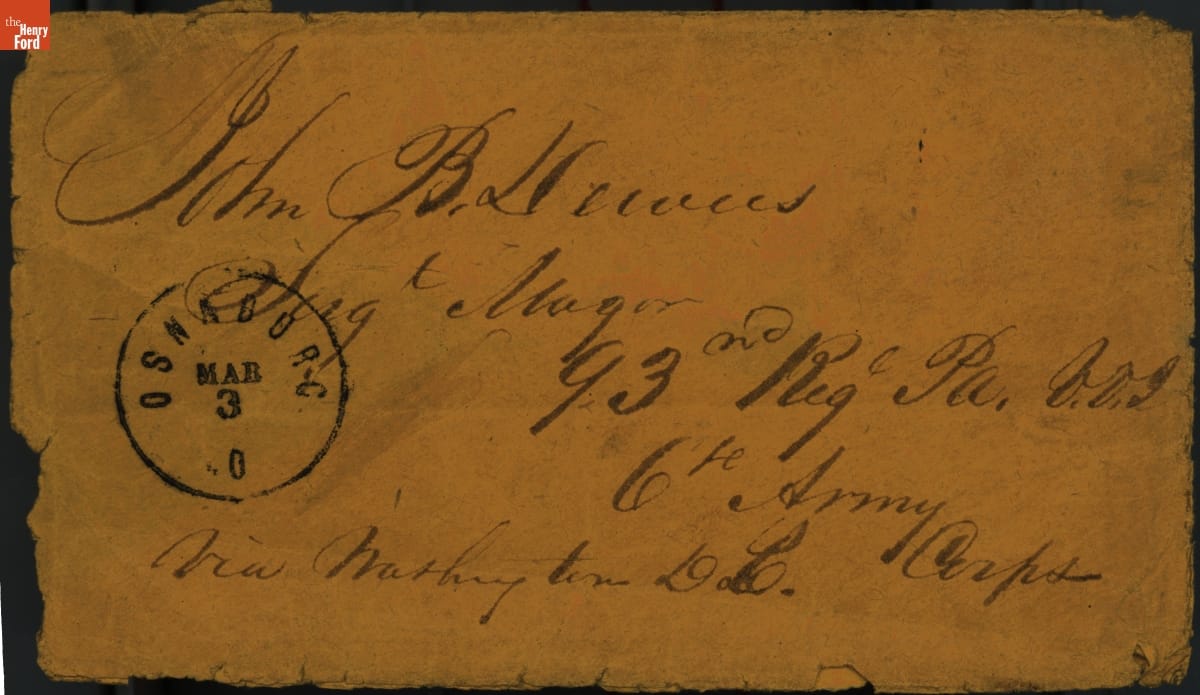 the
Henry
Ford
John B. Hewees
Sergt Major
93nd Regt Pa. V.V.I
6th Army
Corps
Via Washington D.C.
OSNABURG
MAR
3
O